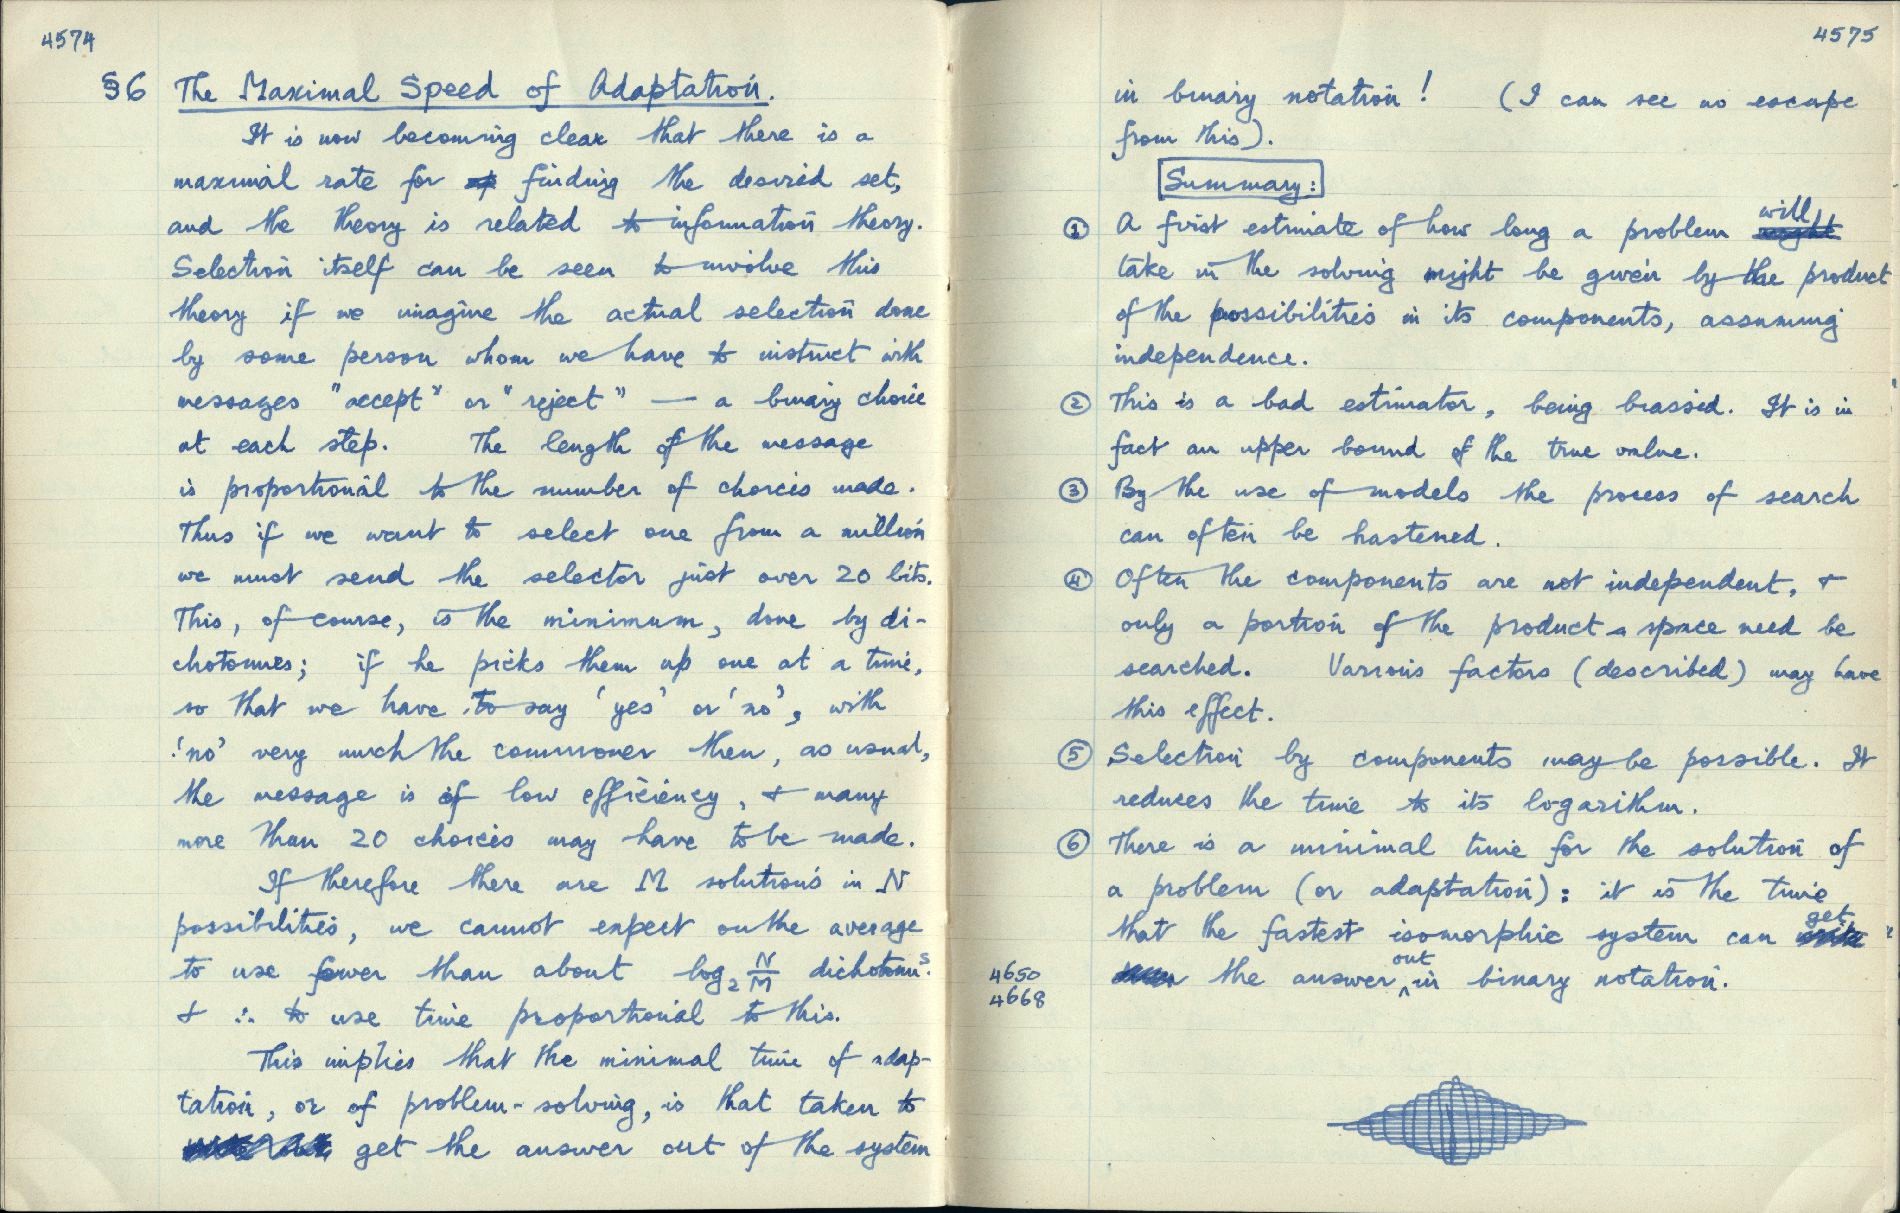 4574
§6 The Maximal Speed of Adaptation.
It is now becoming clear that there is a
maximal rate for finding the desired set,
and the theory is related to information theory.
Selection itself can be seen to involve this
theory if we imagine the actual selection done
by some person whom we have to instruct with
messages "accept" or "reject" — a binary choice
at each step. The length of the message
is proportional to the number of choices made.
Thus if we want to select one from a million
we must send the selector just over 20 bits.
This, of course, is the minimum, done by di-
chotomies; if he picks them up one at a time,
so that we have to say 'yes' or 'no', with
'no' very much the commoner then, as usual,
the message is of low efficiency, & many
more than 20 choices may have to be made.
If therefore there are M solutions in N
possibilities, we cannot expect on the average
to use fewer than about log₂ N/M dichotomies.
& ∴ to use time proportional to this.
This implies that the minimal time of adap-
tation, or of problem-solving, is that taken to
get the answer out of the system
4575
in binary notation! (I can see no escape
from this).
Summary:
① A first estimate of how long a problem will
take in the solving might be given by the product
of the possibilities in its components, assuming
independence.
② This is a bad estimator, being biassed. It is in
fact an upper bound of the true value.
③ By the use of models the process of search
can often be hastened.
④ Often the components are not independent, &
only a portion of the product-space need be
searched. Various factors (described) may have
this effect.
⑤ Selection by components may be possible. It
reduces the time to its logarithm.
⑥ There is a minimal time for the solution of
a problem (or adaptation): it is the time
that the fastest isomorphic system can get
4650
4668
the answer out in binary notation.